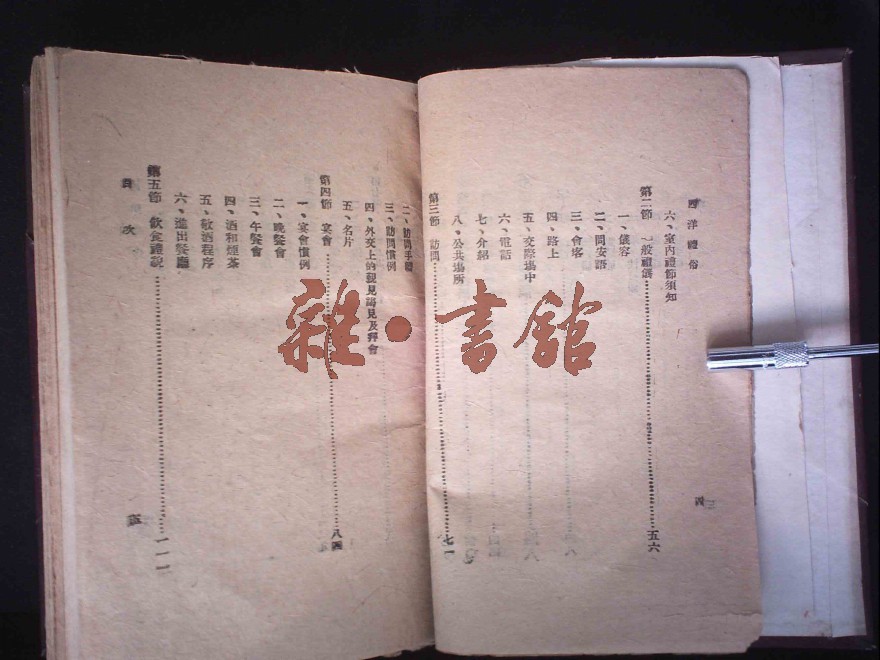 西洋禮俗
六、室內禮節須知
第二節 一般禮儀……五六
一、儀容
二、問安語
三、會客
四、路上
五、交際場中
六、電話
七、介紹
八、公共場所
第三節 訪問……七一
四
二、訪問手續
三、訪問慣例
四、外交上的覲見謁見及拜會
五、名片
第四節 宴會……八四
一、宴會慣例
二、晚餐會
三、午餐會
四、酒和煙茶
五、敬酒程序
六、進出餐廳
第五節 飲食禮貌……一一一
目次
五
雜·書館